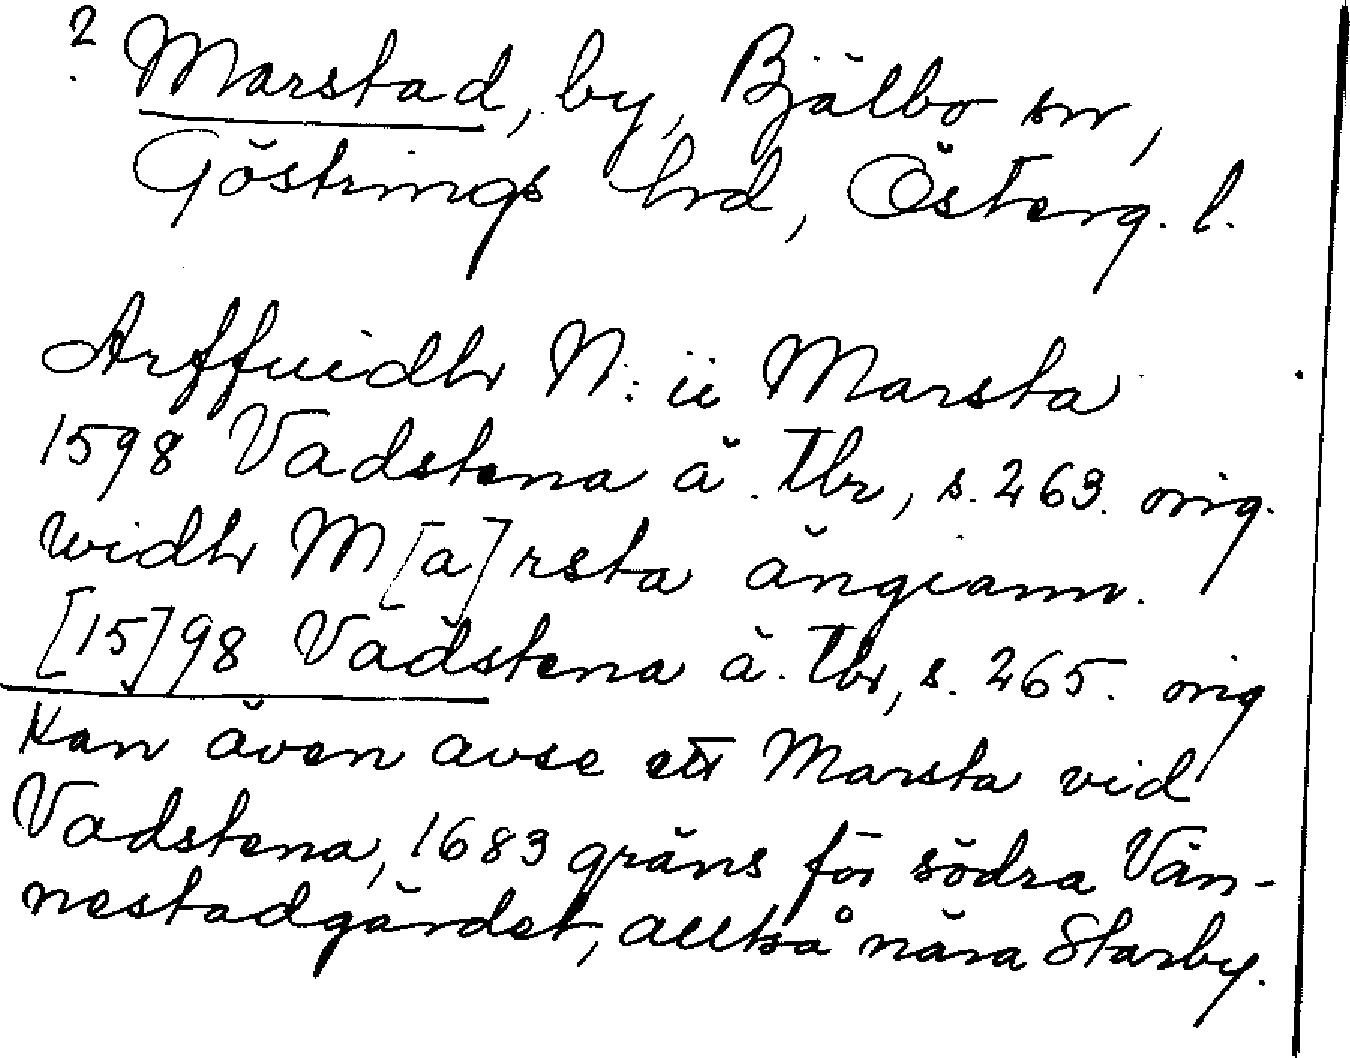 ? Marstad, by, Bjälbo sn,
Göstrings hrd, Österg. l.
Arffuidh N: ii Marsta
1598 Vadstena ä. tbr, s. 263. orig.
widh M[a]rsta ängiann.
[15]98 Vadstena ä. tbr, s. 265. orig
Kan även avse ett Marsta vid
Vadstena, 1683 gräns för södra Vän-
nestadgärdet, alltså nära Starby.